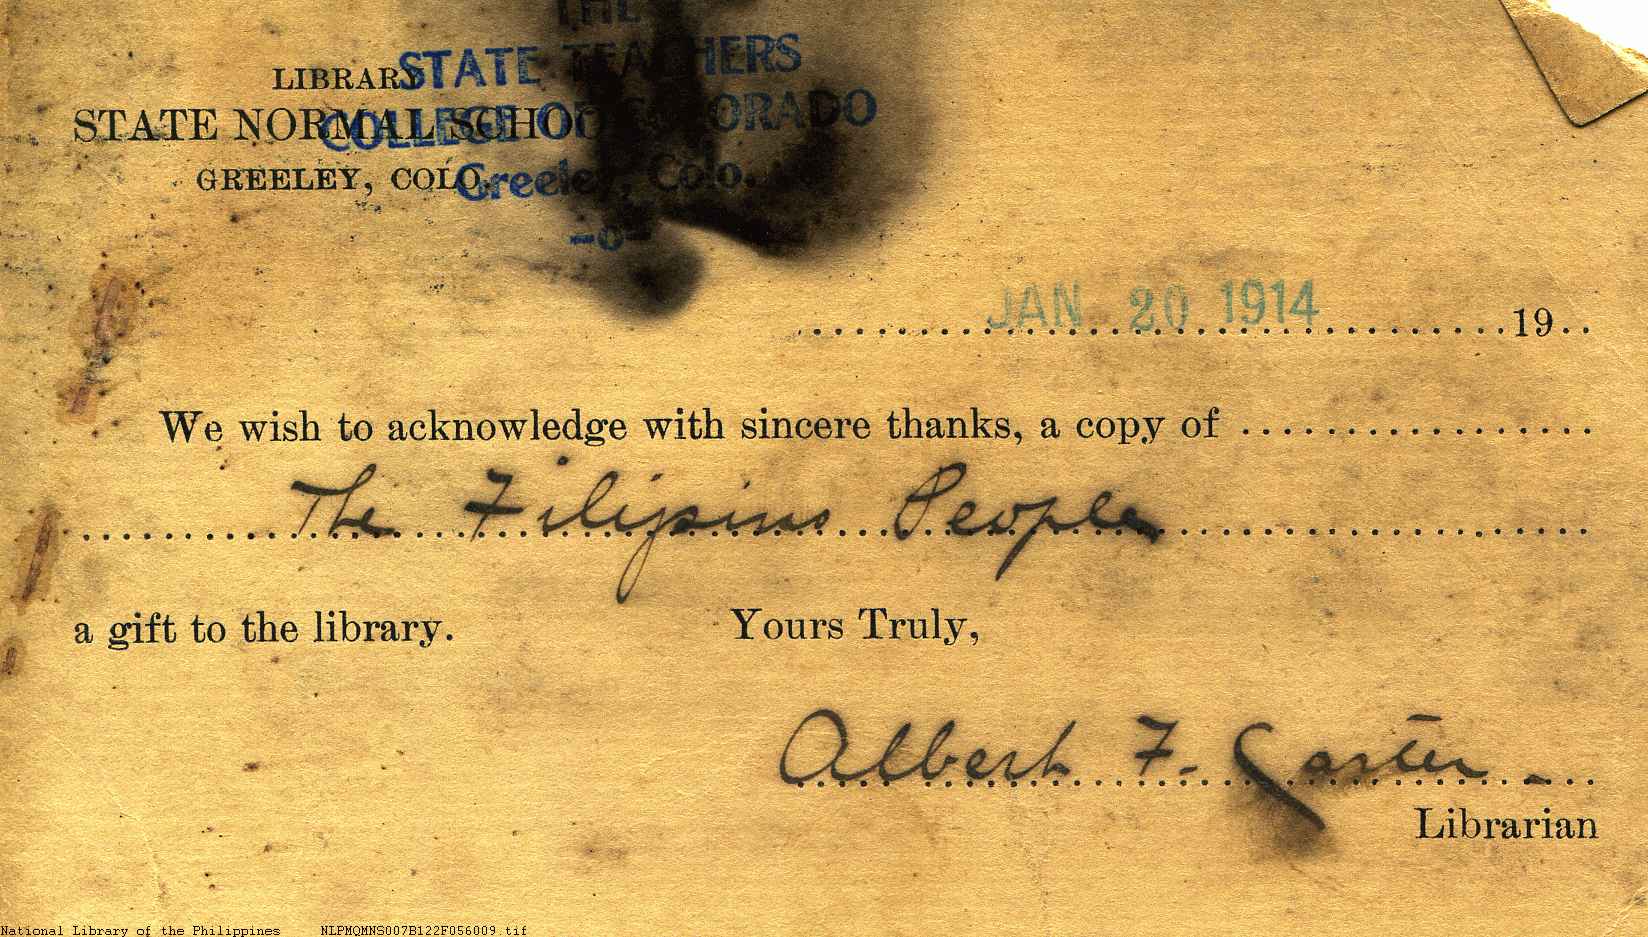 THE
STATE TEACHERS
LIBRARY
COLLEGE OF COLORADO
STATE NORMAL SCHOOL
Greeley, Colo.
GREELEY, COLO.
-o-
JAN 20 1914
19..
We wish to acknowledge with sincere thanks, a copy of
The Filipino People
a gift to the library. Yours Truly,
Albert F. Carter
Librarian
National Library of the Philippines NLPMQMNS007B122F056009.tif